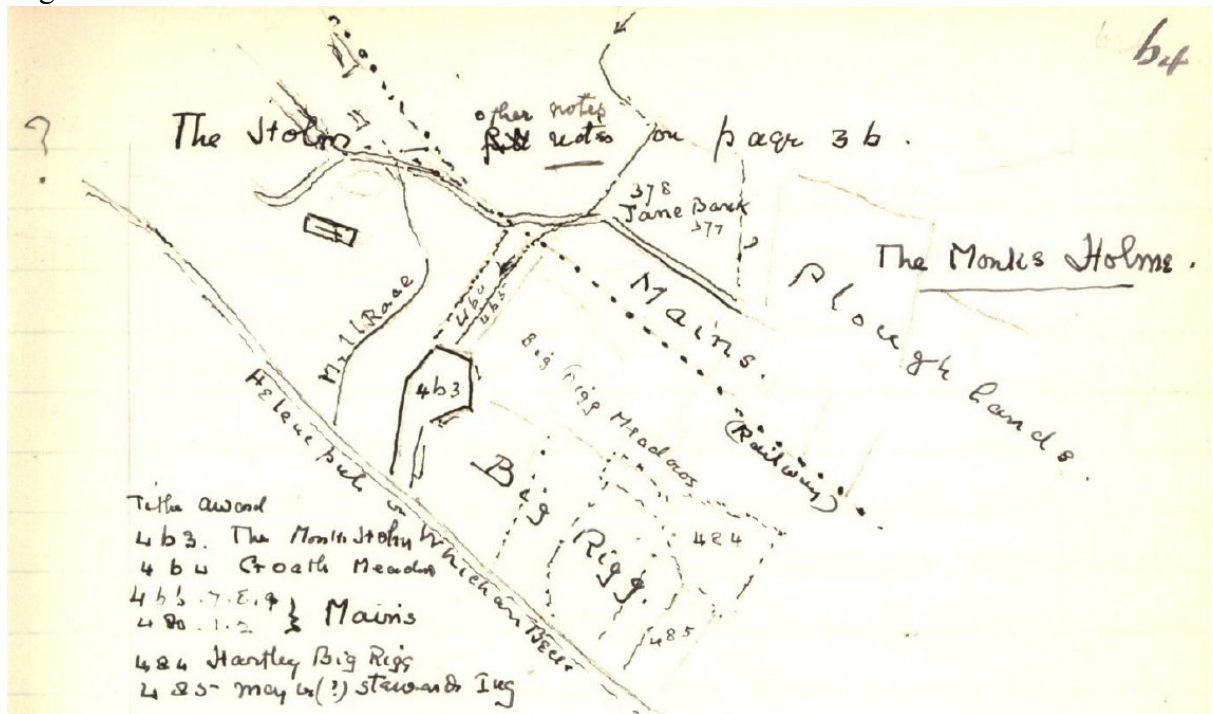 64
The Holm
other notes
notes on page 3b.
?
378
Jane Bank
377
The Monks Holme.
Plough lands.
Mains.
Mill Race
464
465
463
Big Rigg Meadows
(Railway)
Big Rigg.
484
485
Whicham Beck
Tithe award
463. The Monks Holm
464 Croath Meadow
Mains
484 Hartley Big Rigg
485 may be (?) stewards Ing